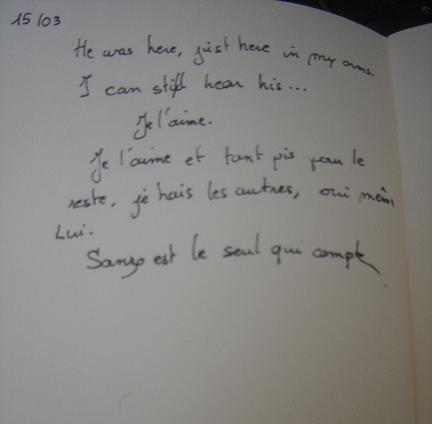 15/03
He was here, just here in my arms.
I can still hear his...
Je l'aime.
Je l'aime et tant pis pour le
reste, je hais les autres, oui même
Lui.
Sanzo est le seul qui compte.